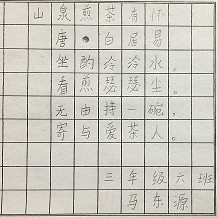 山泉煎茶有怀
唐•白居易
坐酌泠泠水，
看煎瑟瑟尘。
无由持一碗，
寄与爱茶人。
三年级六班
马东源